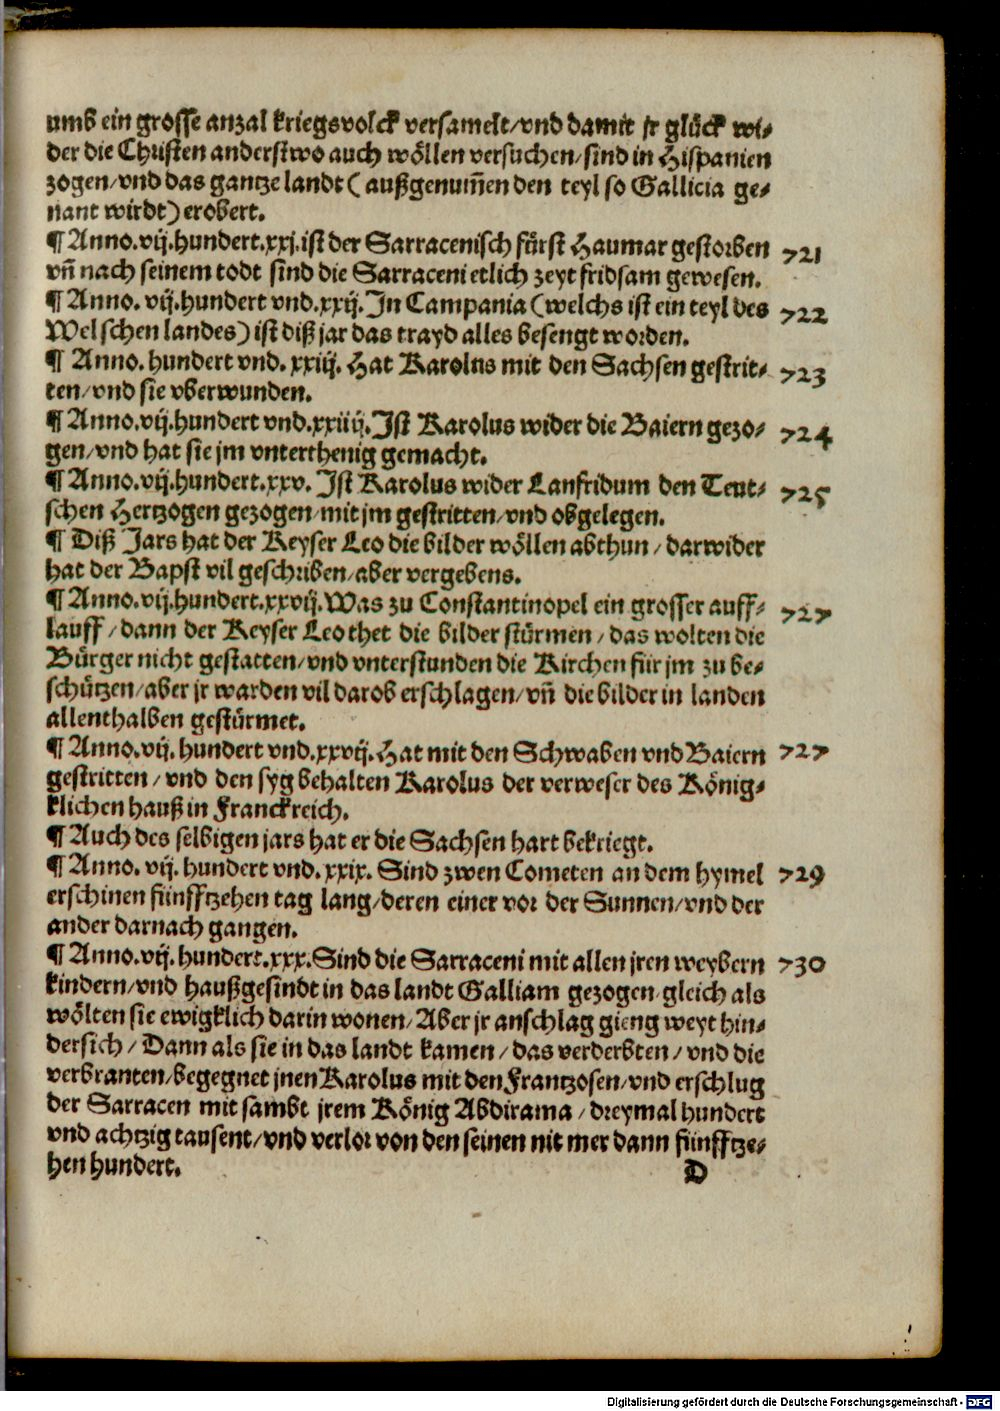 umb ein grosse anzal kriegsvolck versamelt/vnd damit jr glück wi⸗
der die Christen anderstwo auch wöllen versuchen/sind in Hispanien
zogen/vnd das gantze landt (außgenum̃en den teyl so Gallicia ge⸗
nant wirdt) erobert.
¶ Anno.vij.hundert.xxj.ist der Sarracenisch fürst Haumar gestorben 721
vñ nach seinem todt sind die Sarraceni etlich zeyt fridsam gewesen.
¶ Anno. vij.hundert vnd.xxij.In Campania (welchs ist ein teyl des 722
Welschen landes) ist diß jar das trayd alles besengt worden.
¶ Anno. hundert vnd. xxiij. Hat Karolus mit den Sachsen gestrit⸗ 723
ten/vnd sie vberwunden.
¶ Anno.vij.hundert vnd.xxiiij.Ist Karolus wider die Baiern gezo⸗ 724
gen/vnd hat sie jm vnterthenig gemacht.
¶ Anno.vij.hundert.xxv. Ist Karolus wider Lanfridum den Teut⸗ 725
schen Hertzogen gezogen/mit jm gestritten/vnd obgelegen.
¶ Diß Jars hat der Keyser Leo die bilder wöllen abthun/darwider
hat der Bapst vil geschriben/aber vergebens.
¶ Anno.vij.hundert.xxvij.Was zu Constantinopel ein grosser auff⸗ 727
lauff/dann der Keyser Leo thet die bilder stürmen/das wolten die
Bürger nicht gestatten/vnd vnterstunden die Kirchen für jm zu be⸗
schützen/aber jr warden vil darob erschlagen/vñ die bilder in landen
allenthalben gestürmet.
¶ Anno.vij. hundert vnd.xxvij.Hat mit den Schwaben vnd Baiern 727
gestritten/vnd den syg behalten Karolus der verweser des König⸗
klichen hauß in Franckreich.
¶ Auch des selbigen jars hat er die Sachsen hart bekriegt.
¶ Anno. vij. hundert vnd. xxix. Sind zwen Cometen an dem hymel 729
erschinen fünfftzehen tag lang/deren einer vor der Sunnen/vnd der
ander darnach gangen.
¶ Anno.vij.hundert.xxx.Sind die Sarraceni mit allen jren weybern 730
kindern/vnd haußgesindt in das landt Galliam gezogen/gleich als
wölten sie ewigklich darin wonen/Aber jr anschlag gieng weyt hin⸗
dersich/Dann als sie in das landt kamen/das verderbten/vnd die
verbranten/begegnet jnen Karolus mit den Frantzosen/vnd erschlug
der Sarracen mit sambt jrem König Abdirama/dreymal hundert
vnd achtzig tausent/vnd verlor von den seinen nit mer dann fünfftze⸗
hen hundert.
D
Digitalisierung gefördert durch die Deutsche Forschungsgemeinschaft - DFG